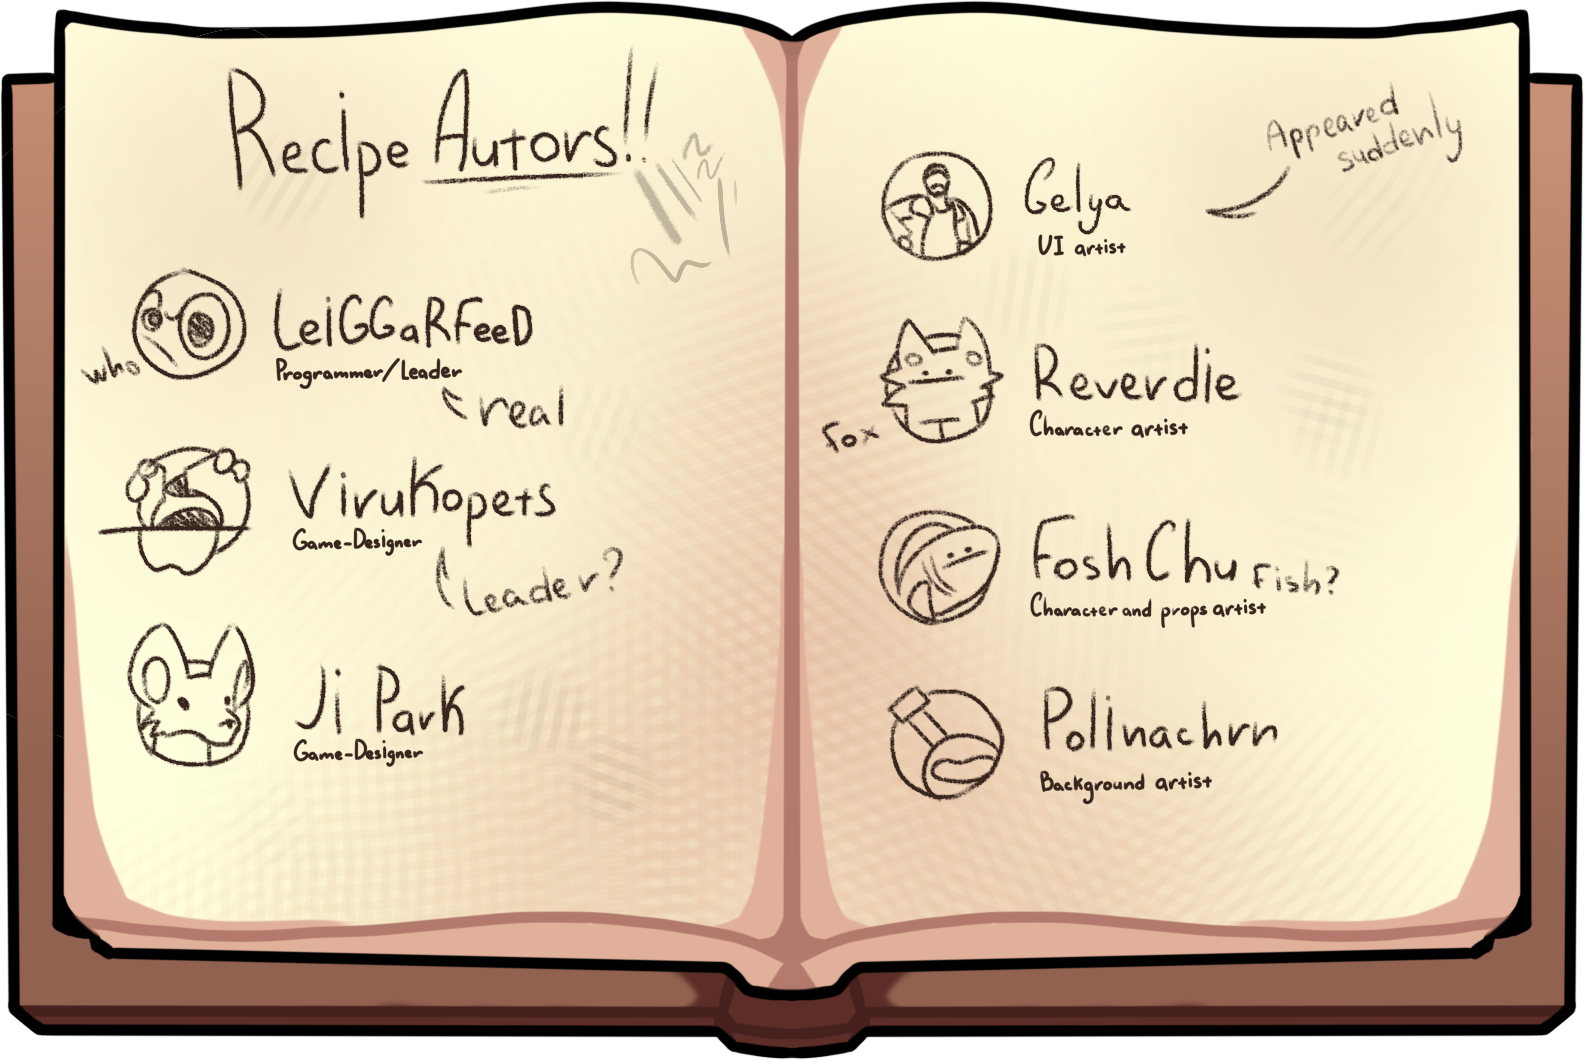 Recipe Autors!!
LeiGGaRFeeD
who
Programmer/Leader
real
Virukopets
Game-Designer
Leader?
Ji Park
Game-Designer
Appeared
suddenly
Gelya
UI artist
Reverdie
Fox
Character artist
Fosh Chu
Fish?
Character and props artist
Polinachrn
Background artist